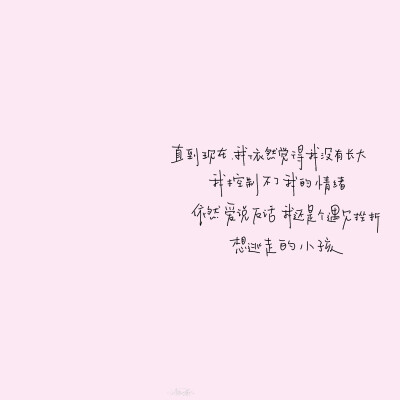 直到现在,我依然觉得我没有长大
我控制不了我的情绪
依然爱说反话 我还是个遇见挫折
想逃走的小孩